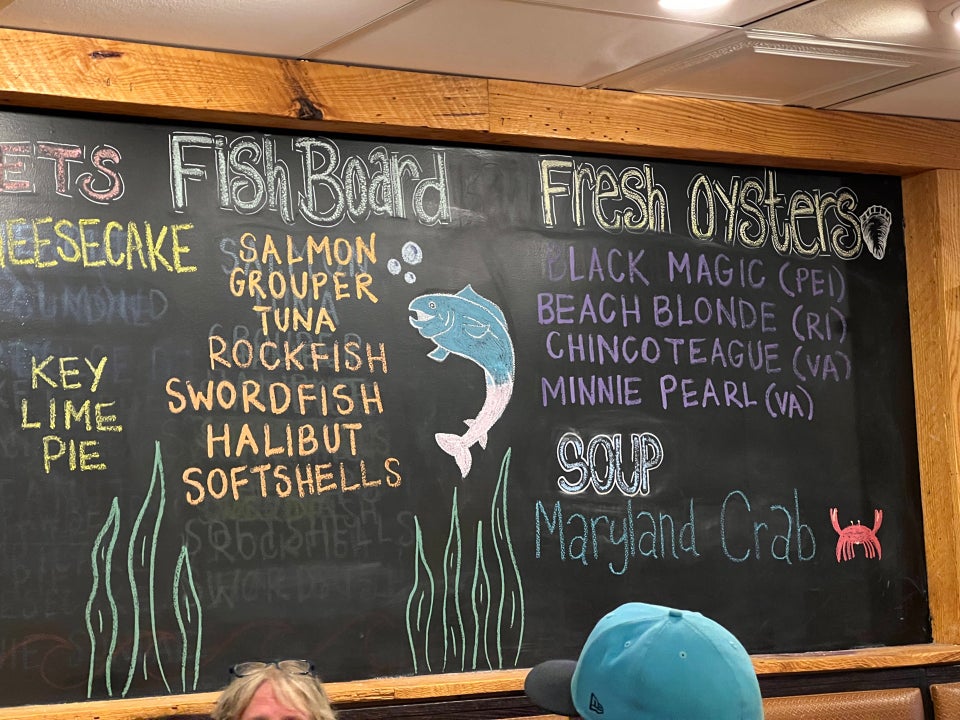 ETS
HEESECAKE
KEY
LIME
PIE
Fish Board
SALMON
GROUPER
TUNA
ROCKFISH
SWORDFISH
HALIBUT
SOFTSHELLS
Fresh Oysters
BLACK MAGIC (PEI)
BEACH BLONDE (RI)
CHINCOTEAGUE (VA)
MINNIE PEARL (VA)
SOUP
Maryland Crab